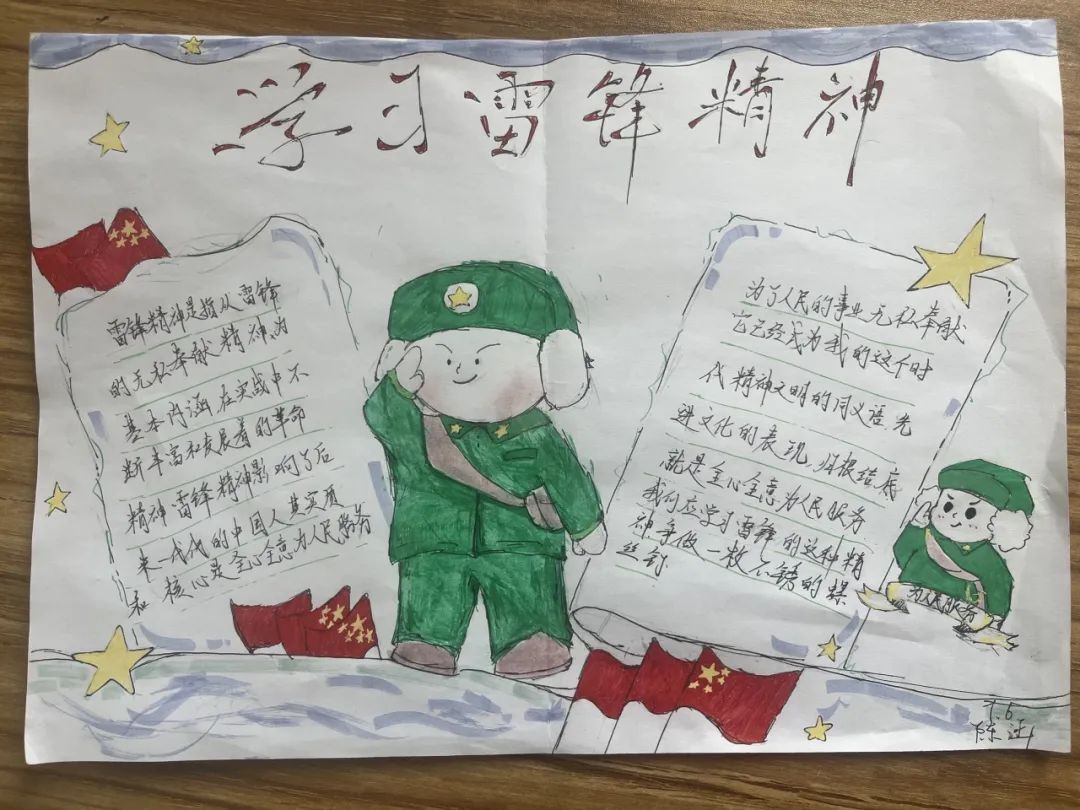 学习雷锋精神
雷锋精神是指从雷锋
的无私奉献精神,为
基本内涵,在实战中不
断丰富和发展着的革命
精神雷锋精神影响了后
来一代代的中国人其实质
和核心是全心全意为人民服务
为了人民的事业无私奉献
它已经成为我的这个时
代精神文明的同义语先
进文化的表现,归根结底
就是全心全意为人民服务
我们应学习雷锋的这种精
神争做一枚不锈的螺
丝钉
为人民服务
7.6
陈